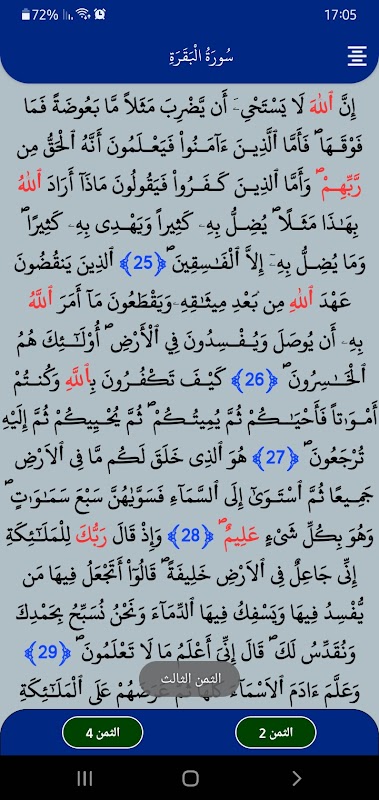 72% 17:05
سُورَةُ الْبَقَرَةِ
إِنَّ اَللَّهَ لَا يَسْتَحْيِۦٓ أَنْ يَّضْرِبَ مَثَلاٗ مَّا بَعُوضَةٗ فَمَا
فَوْقَهَاۖ فَأَمَّا اَلذِينَ ءَامَنُواْ فَيَعْلَمُونَ أَنَّهُ اُلْحَقُّ مِن
رَّبِّهِمْۖ وَأَمَّا اَلذِينَ كَفَرُواْ فَيَقُولُونَ مَاذَآ أَرَادَ اَللَّهُ
بِهَٰذَا مَثَلاٗۖ يُضِلُّ بِهِۦ كَثِيراٗ وَيَهْدِى بِهِۦ كَثِيراٗۖ
وَمَا يُضِلُّ بِهِۦٓ إِلَّا اَلْفَٰسِقِينَۖ ﴿25﴾ اَلذِينَ يَنقُضُونَ
عَهْدَ اَللَّهِ مِنۢ بَعْدِ مِيثَٰقِهِۦ وَيَقْطَعُونَ مَآ أَمَرَ اَللَّهُ
بِهِۦٓ أَنْ يُوصَلَ وَيُفْسِدُونَ فِي اِلْأَرْضِۖ أُوْلَٰٓئِكَ هُمُ
اُلْخَٰسِرُونَۖ ﴿26﴾ كَيْفَ تَكْفُرُونَ بِاللَّهِ وَكُنتُمْ
أَمْوَٰتاٗ فَأَحْيَٰكُمْ ثُمَّ يُمِيتُكُمْۖ ثُمَّ يُحْيِيكُمْ ثُمَّ إِلَيْهِ
تُرْجَعُونَۖ ﴿27﴾ هُوَ اَلذِى خَلَقَ لَكُم مَّا فِي اِلْأَرْضِ
جَمِيعاٗ ثُمَّ اَسْتَوَىٰٓ إِلَى اَلسَّمَآءِ فَسَوَّىٰهُنَّ سَبْعَ سَمَٰوَٰتٖۖ
وَهُوَ بِكُلِّ شَيْءٍ عَلِيمٞۖ ﴿28﴾ وَإِذْ قَالَ رَبُّكَ لِلْمَلَٰٓئِكَةِ
إِنِّى جَاعِلٞ فِي اِلْأَرْضِ خَلِيفَةٗۖ قَالُوٓاْ أَتَجْعَلُ فِيهَا مَن
يُّفْسِدُ فِيهَا وَيَسْفِكُ فِيهَا اَلدِّمَآءَ وَنَحْنُ نُسَبِّحُ بِحَمْدِكَ
وَنُقَدِّسُ لَكَۖ قَالَ إِنِّىٓ أَعْلَمُ مَا لَا تَعْلَمُونَۖ ﴿29﴾
وَعَلَّمَ ءَادَمَ اَلْأَسْمَآءَ كُلَّهَا ثُمَّ عَرَضَهُمْ عَلَى اَلْمَلَٰٓئِكَةِ
الثمن الثالث
الثمن 4
الثمن 2